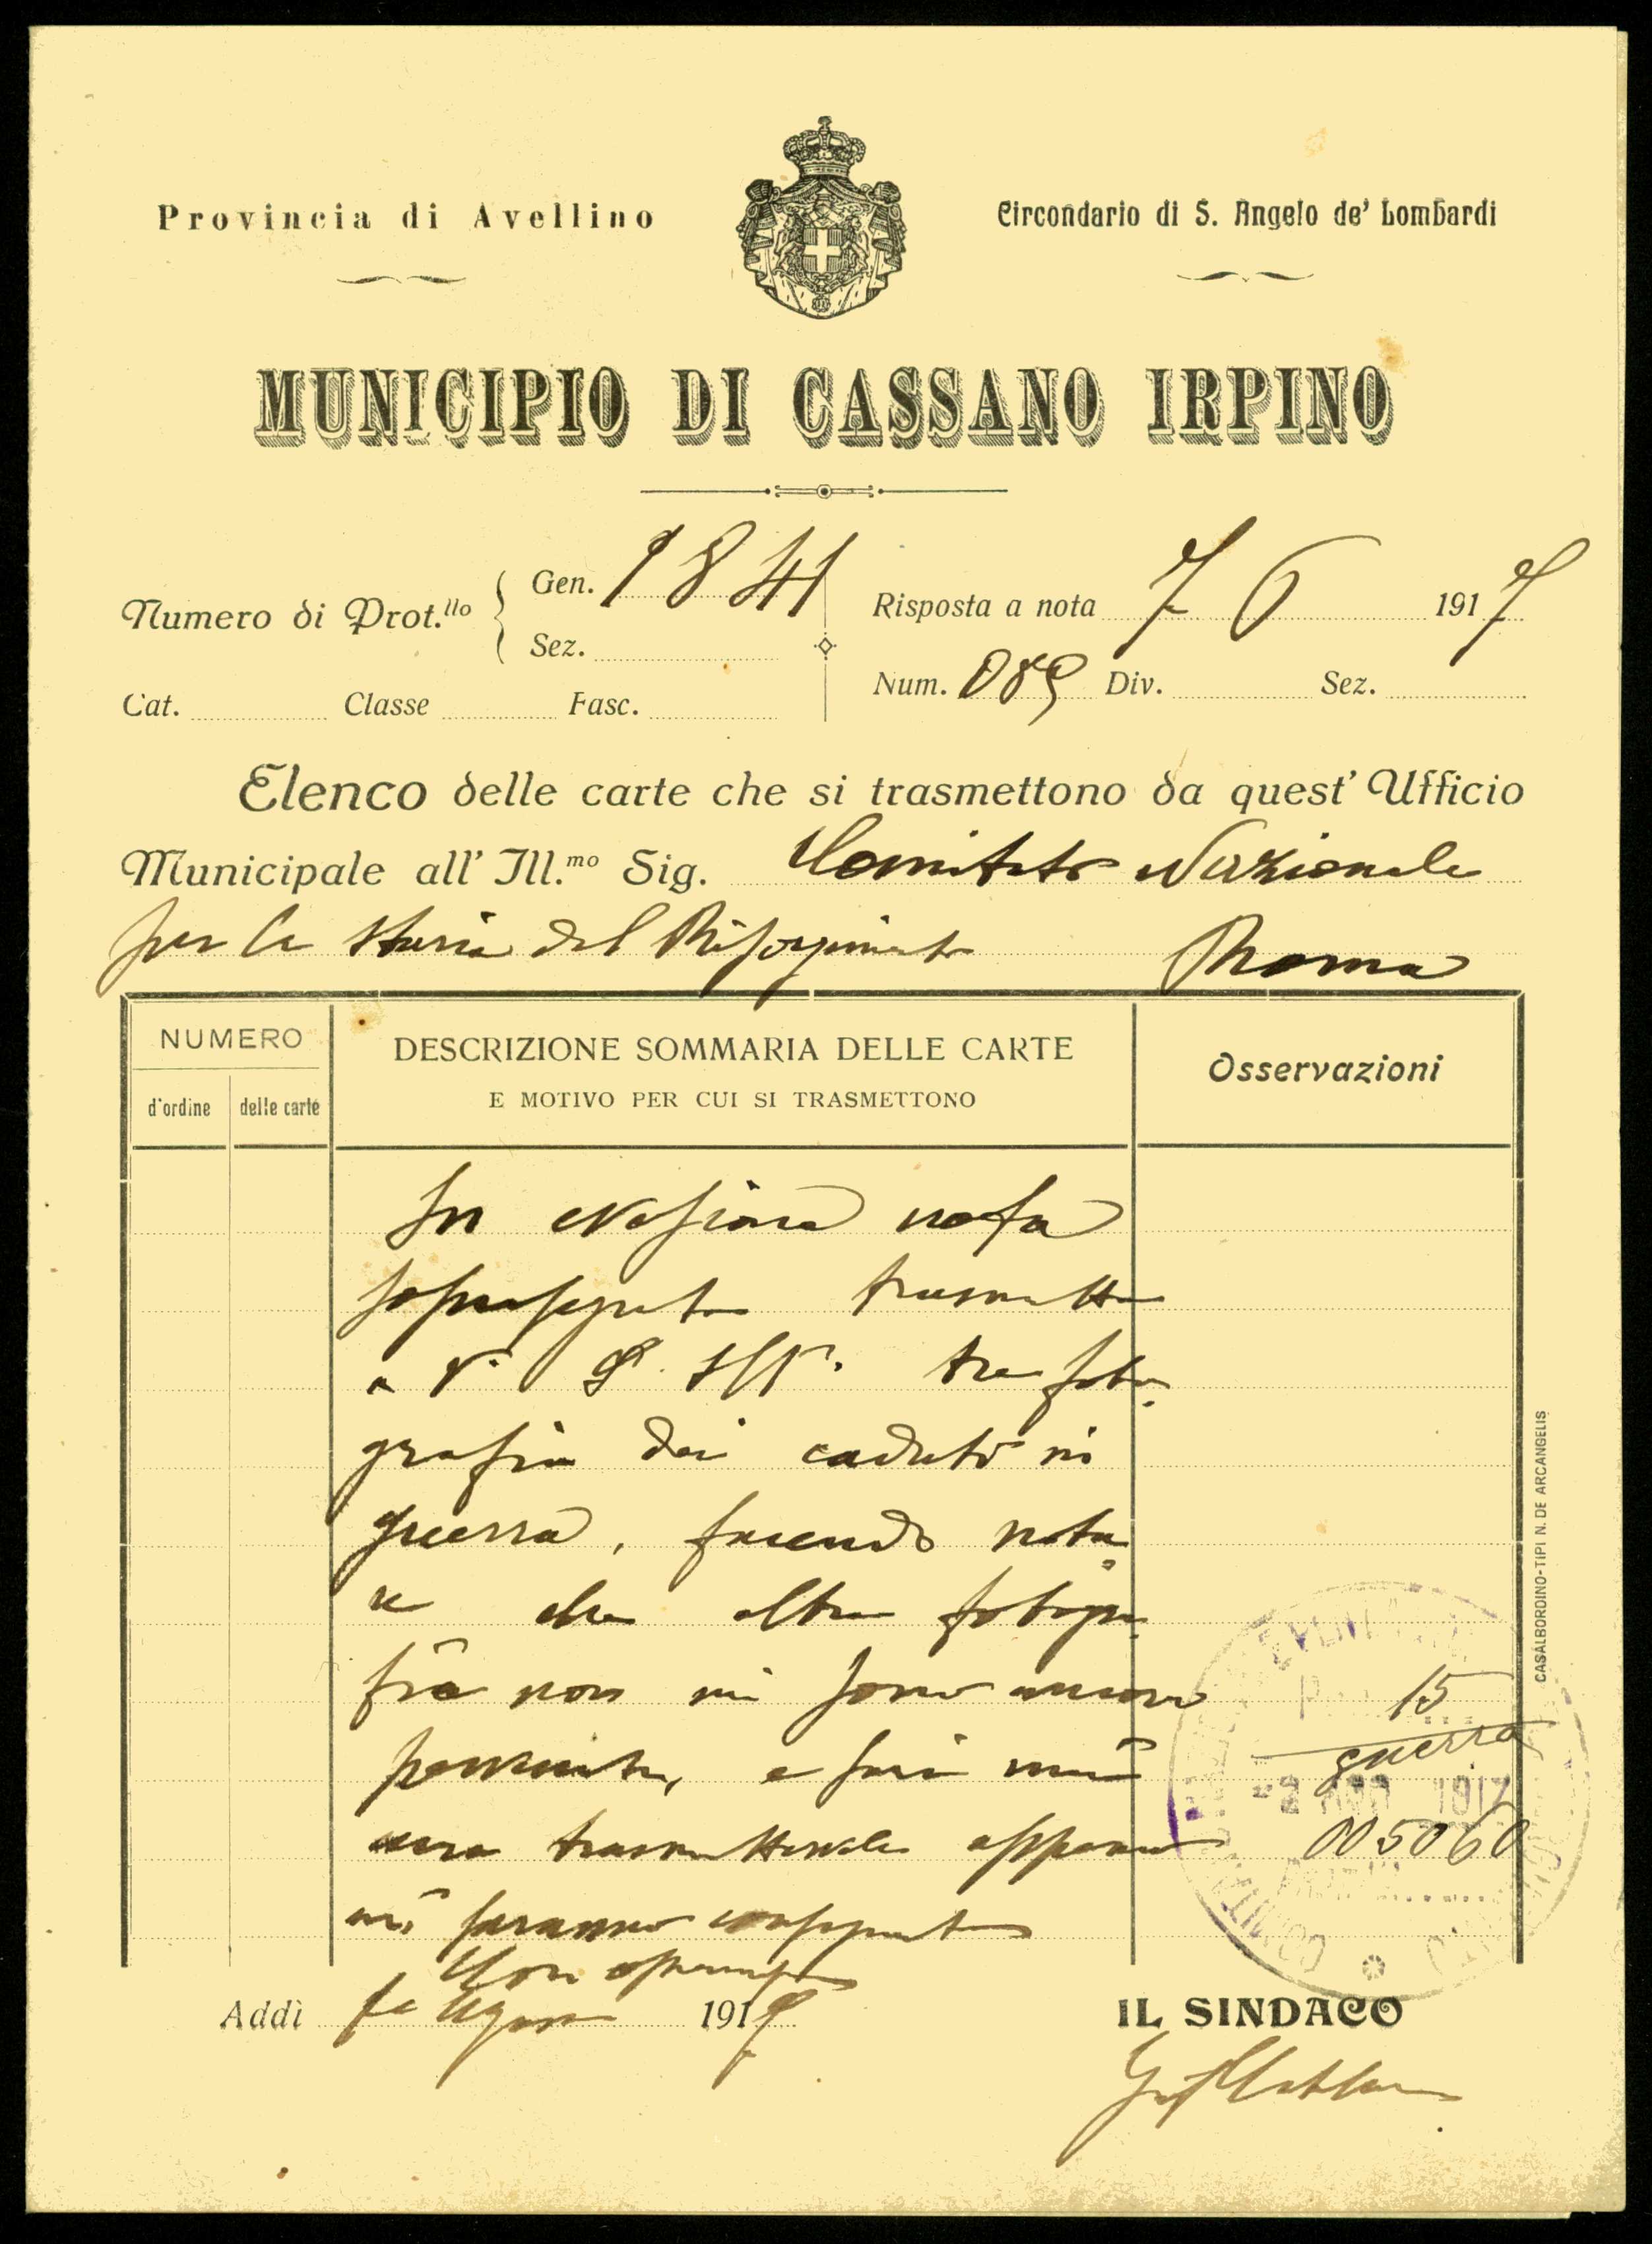 Provincia di Avellino
Circondario di S. Angelo de' Lombardi
MUNICIPIO DI CASSANO IRPINO
Numero di Prot.llo
Gen. 1841
Sez.
Cat. Classe Fasc.
Risposta a nota 7 6 1917
Num. 089 Div. Sez.
Elenco delle carte che si trasmettono da quest' Ufficio
Municipale all' Ill.mo Sig. Comitato Nazionale
per la storia del Risorgimento Roma
NUMERO
d'ordine
delle carte
DESCRIZIONE SOMMARIA DELLE CARTE
E MOTIVO PER CUI SI TRASMETTONO
Osservazioni
In evasione nota
soprasegnata trasmetto
a V. S. Ill. tre foto-
grafie dei caduti in
guerra, facendo nota
re che altre fotogra
fie non mi sono ancora
pervenute, e sarà mia
cura trasmettervele appena
mi saranno consegnate
Con
Addì 1917
IL SINDACO
15
guerra
1917
005060
COMITATO
CASALBORDINO-TIPI N. DE ARCANGELIS